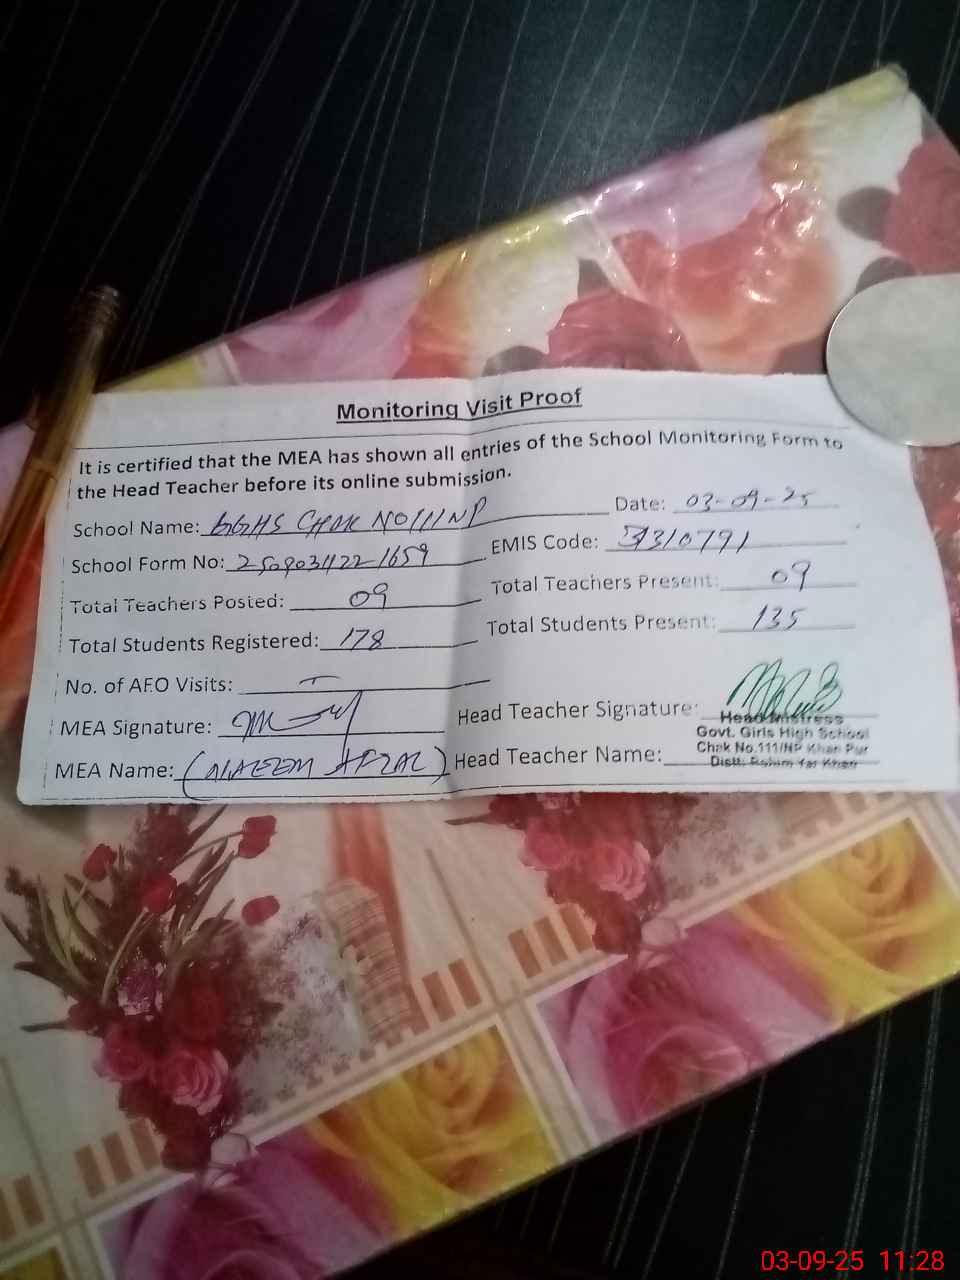 Monitoring Visit Proof
It is certified that the MEA has shown all entries of the School Monitoring Form to
the Head Teacher before its online submission.
School Name: GGHS CHAK NO 111NP Date: 03-09-25
School Form No: EMIS Code: 31310791
Total Teachers Posted: 09 Total Teachers Present: 09
Total Students Registered: 178 Total Students Present: 135
No. of AEO Visits: —
MEA Signature: Head Teacher Signature:
MEA Name: (NAEEM AFZAL) Head Teacher Name:
Head Mistress
Govt. Girls High School
Chak No.111/NP Khan Pur
Distt. Rahim Yar Khan
03-09-25 11:28